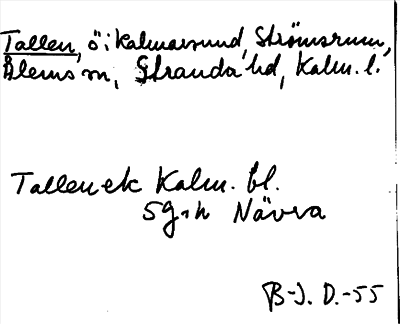 Tallen, ö i Kalmarsund, Strömsrum,
Ålems sn, Stranda hd, Kalm. l.
Tallen ek Kalm. bl.
5 9 s h Nävra
B-J. D.-55